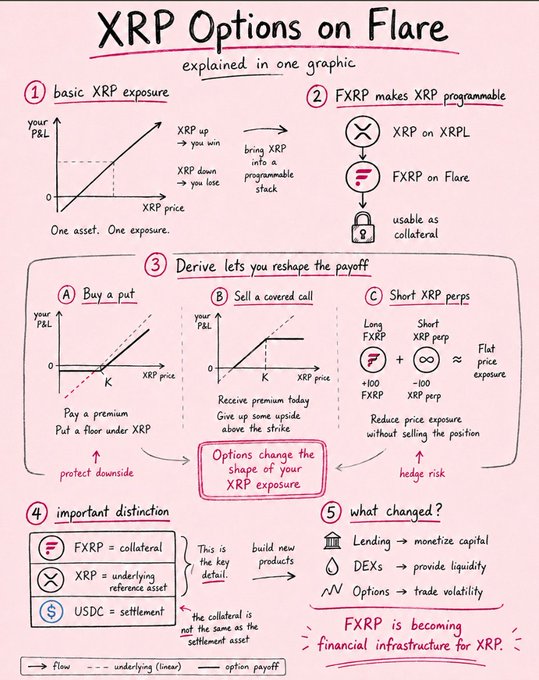 XRP Options on Flare
explained in one graphic
1 basic XRP exposure
your
P&L
0
XRP price
XRP up
→ you win
XRP down
→ you lose
bring XRP
into a
programmable
stack
One asset. One exposure.
2 FXRP makes XRP programmable
XRP on XRPL
FXRP on Flare
usable as
collateral
3 Derive lets you reshape the payoff
A Buy a put
your
P&L
0
K
XRP price
Pay a premium
Put a floor under XRP
protect downside
B Sell a covered call
your
P&L
0
K
XRP price
Receive premium today
Give up some upside
above the strike
C Short XRP perps
Long
FXRP
Short
XRP perp
+
≈
Flat
price
exposure
+100
FXRP
-100
XRP perp
Reduce price exposure
without selling the position
hedge risk
Options change the
shape of your
XRP exposure
4 important distinction
FXRP = collateral
XRP = underlying
reference asset
$ USDC = settlement
This is
the key
detail.
build new
products
the collateral is
not the same as the
settlement asset
5 what changed?
Lending → monetize capital
DEXs → provide liquidity
Options → trade volatility
FXRP is becoming
financial infrastructure for XRP.
→ flow --- underlying (linear) — option payoff